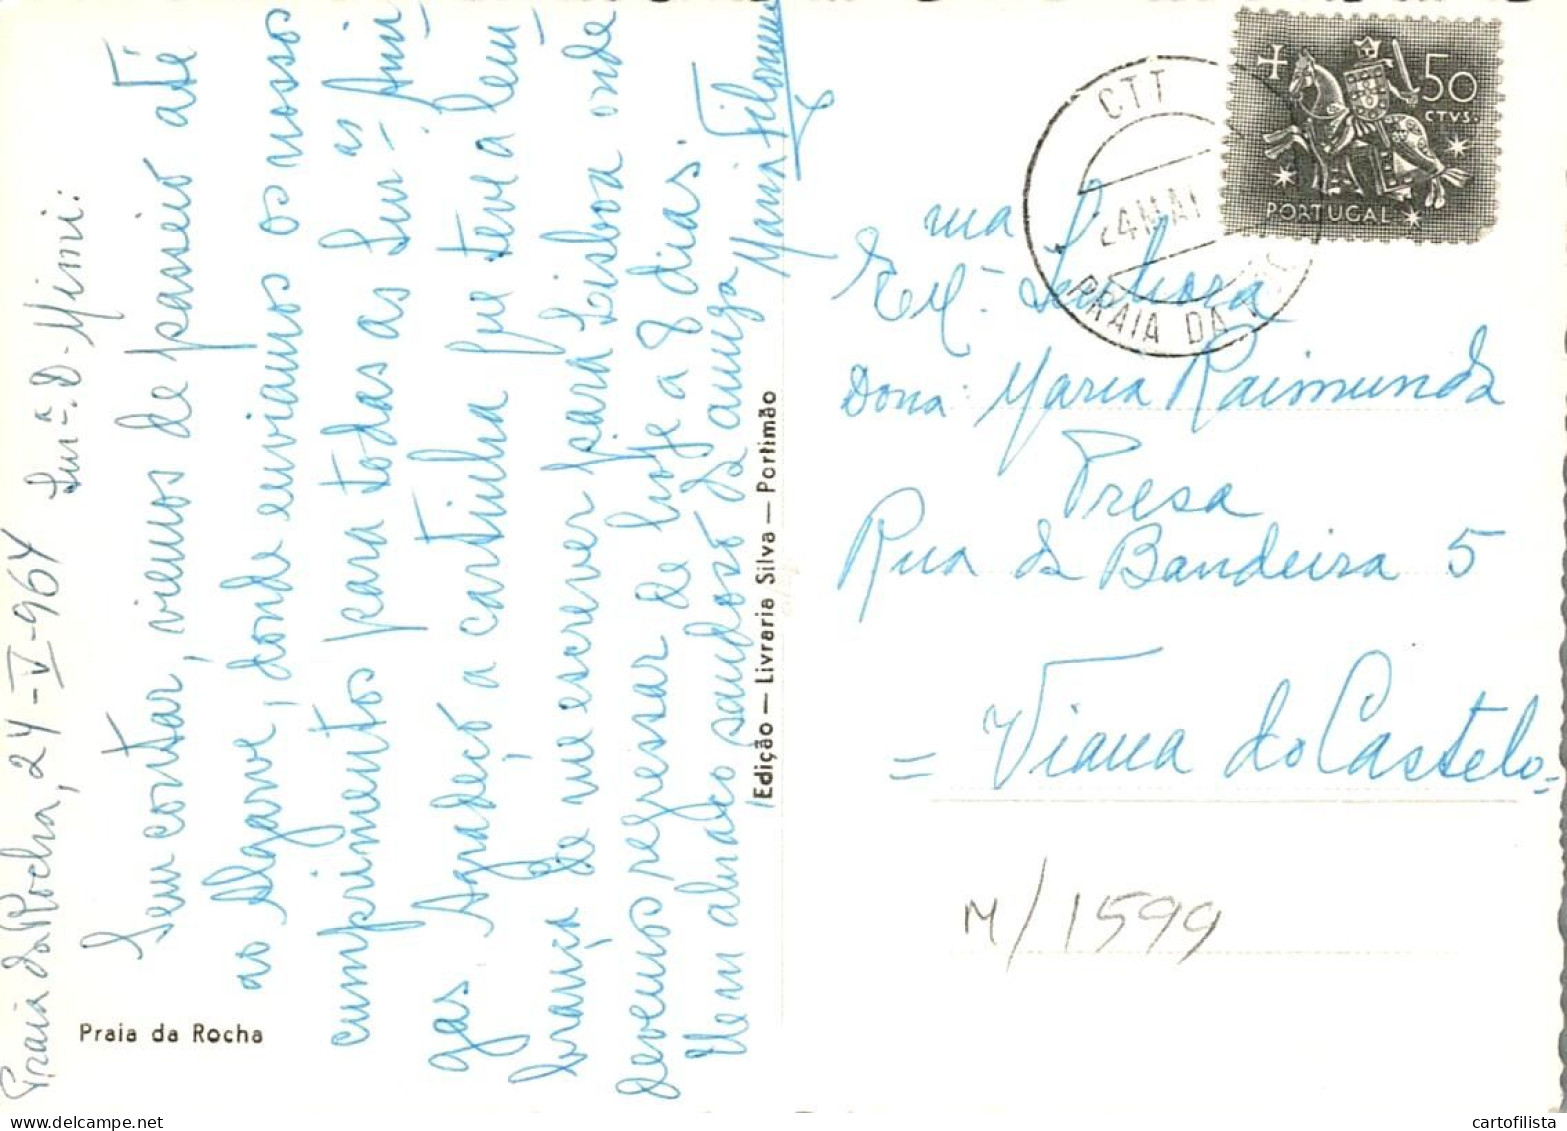 Praia da Rocha, 24-V-964
Snrª. D. Mimi:
Sem contar, viemos de passeio até
ao Algarve, donde enviamos os nossos
cumprimentos para todas as Snr.as Ami-
gas. Agradeço a cartinha que teve a lem-
brança de me escrever para Lisboa onde
devemos regressar de hoje a 8 dias.
Um abraço saudoso da amiga
Maria Filomena
Praia da Rocha
Edição — Livraria Silva — Portimão
CTT
24 MAI
PRAIA DA
50
CTVS.
PORTUGAL
Exma Senhora
Dona Maria Raimunda
Presa
Rua da Bandeira 5
= Viana do Castelo =
M/1599
cartofilista